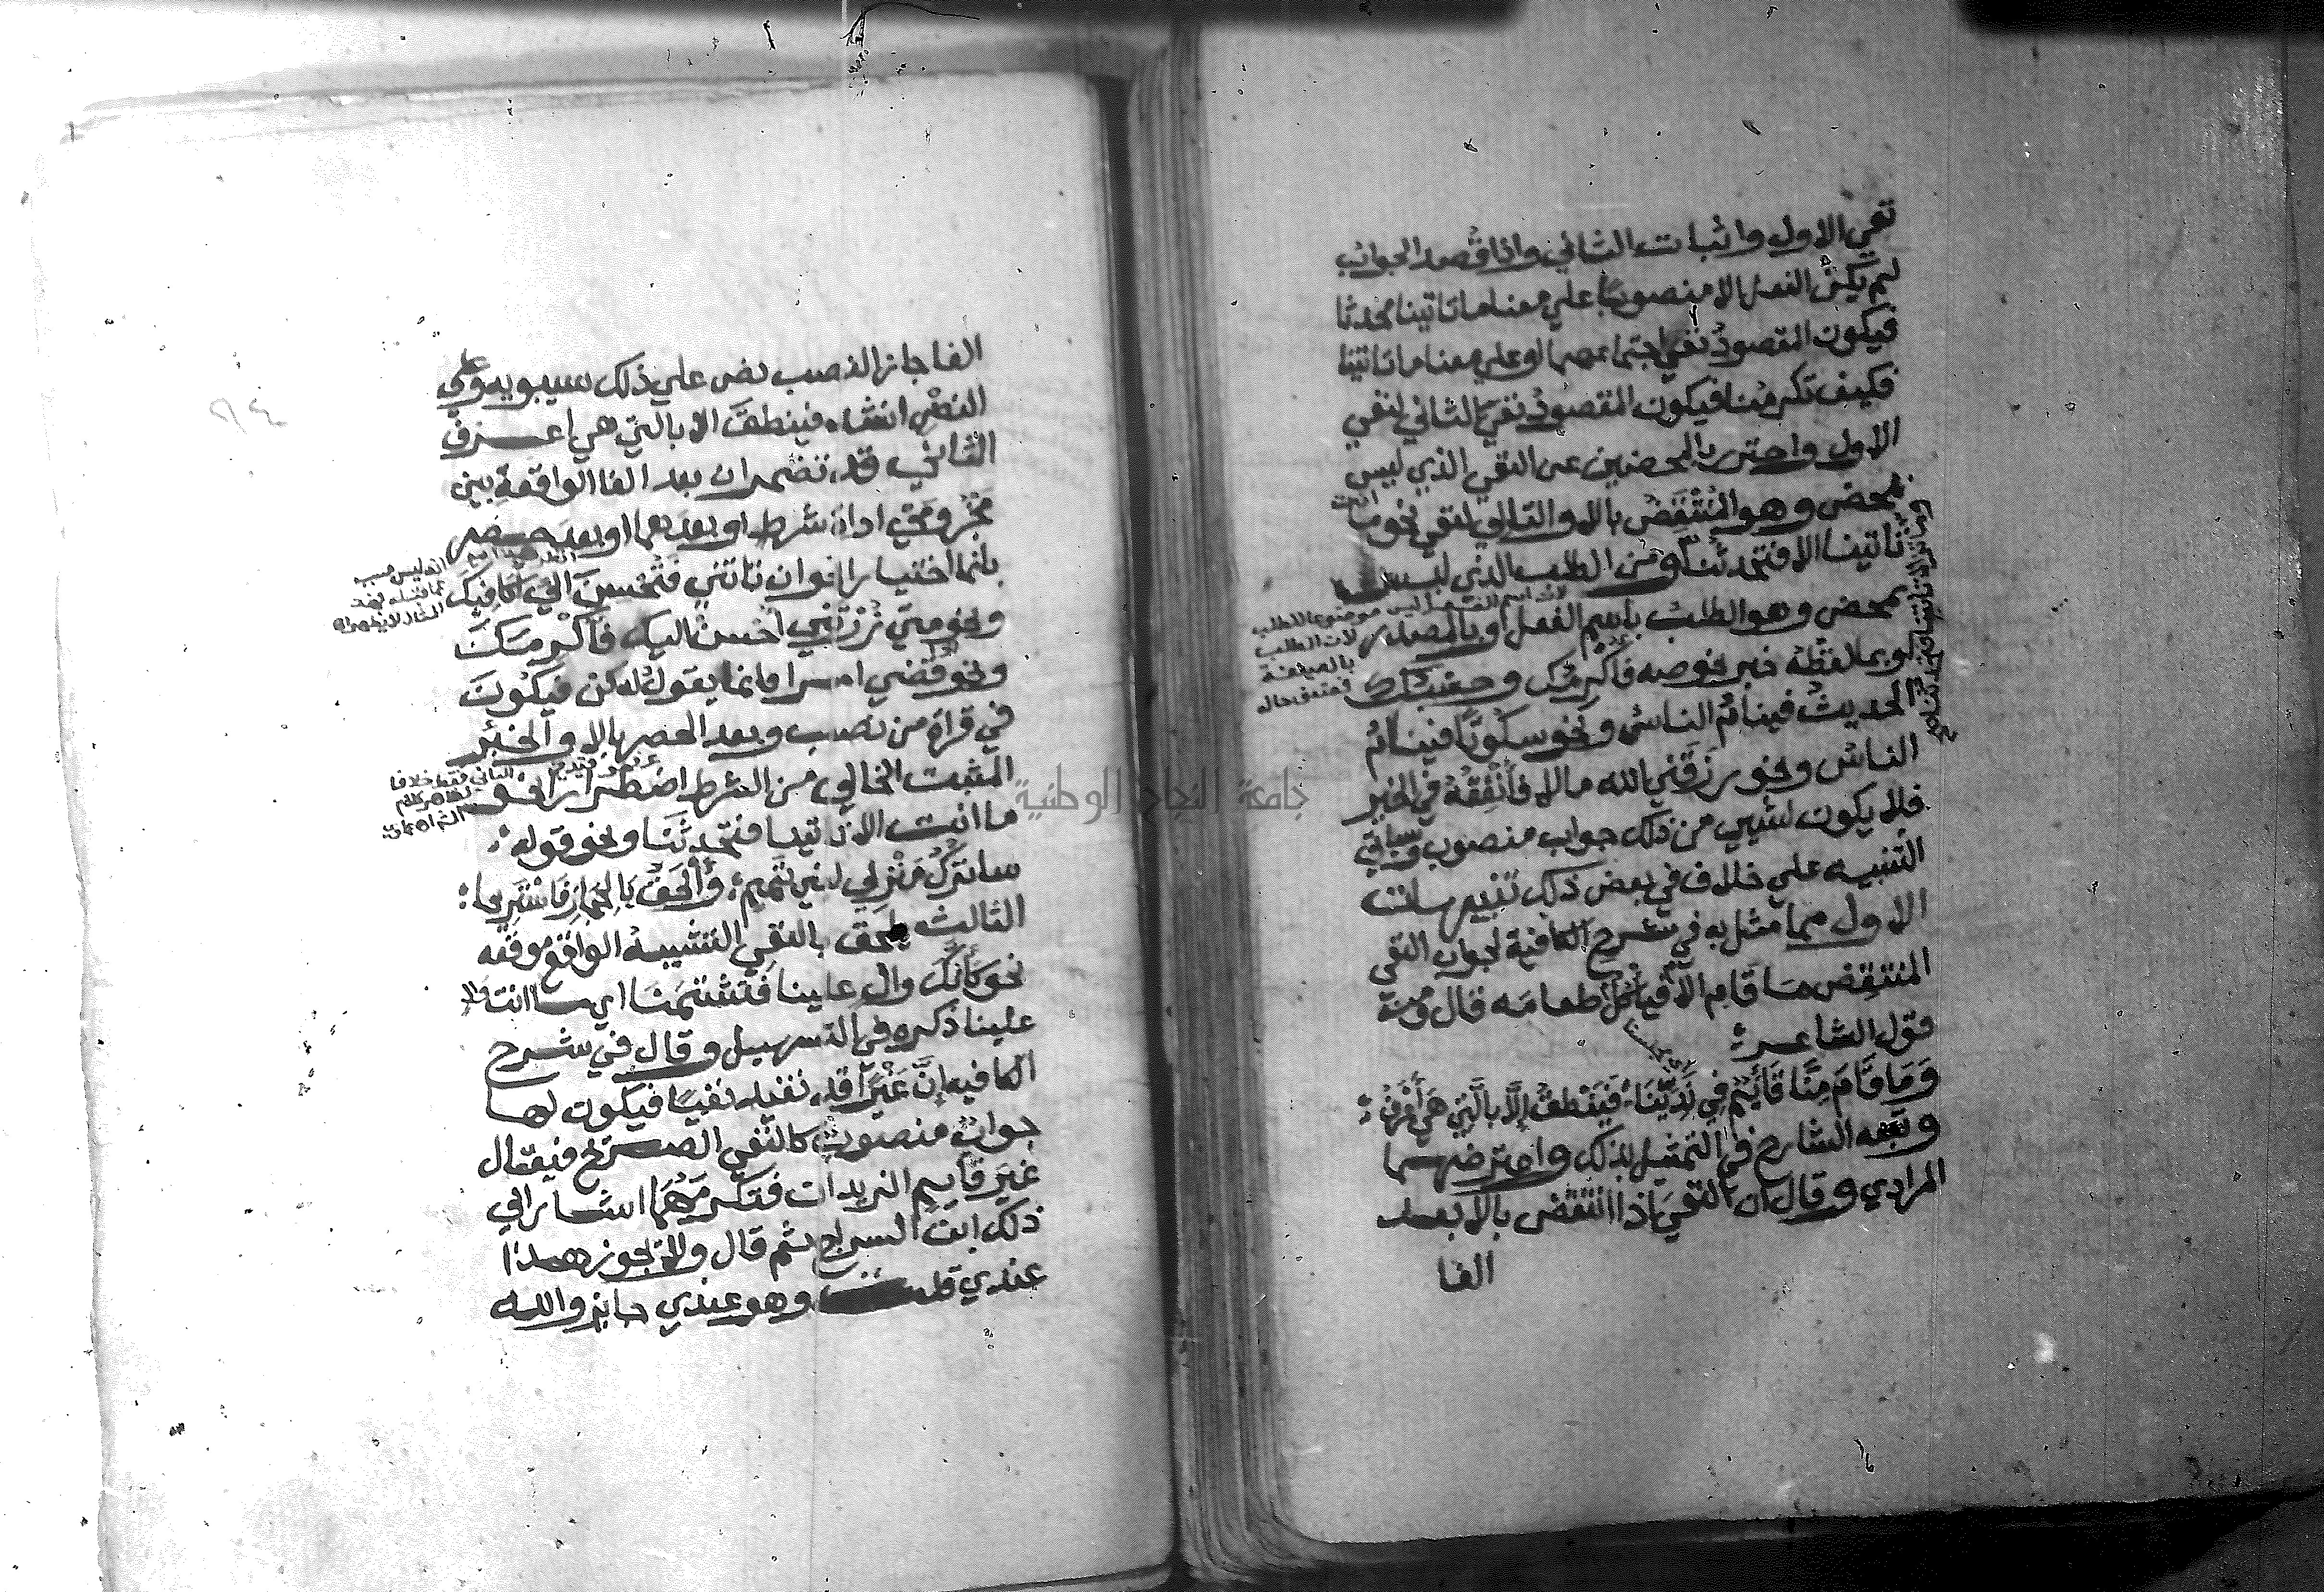 نفي الاول واثبات الثاني واذا قصد الجواب
لم يكن الفعل الا منصوبا علي معنا ما تاتينا محدثا
فيكون المقصود نفي اجتماعهما او علي معنا ما تاتينا
فكيف تكرمنا فيكون المقصود نفي الثاني لنفي
الاول واحترز بالمحضين عن النفي الذي ليس
بمحض وهو المنتقض بالا والتالي لنفي نحو ما انت
تاتينا الا فتحدثنا ومن الطلب الذي ليس
بمحض وهو الطلب باسم الفعل او بالمصدر
او بما لفظه خبر نحو صه فاكرمك وحسبك
الحديث فينائم الناس ونحو سكوتا فينائم
الناس ونحو رزقني الله مالا فانفقه في الخير
فلا يكون لشيي من ذلك جواب منصوب وسياتي
التنبيه علي خلاف في بعض ذلك تنبيهات
الاول مما مثل به في شرح الكافية لجواب النفي
المنتقض ما قام الا فياكل طعامه قال ومنه
قول الشاعر :
وَمَا قَامَ مِنَّا قَائِم فِي نَدِيِّنَا: فَيَنْطِقُ إِلَّا بِالَّتِي هِيَ أَعْرَف :
وتبعه الشارح في التمثيل بذلك واعترضهما
المرادي وقال ان النفي اذا انتقض بالا بعد
الفا
لان اسم الفعل ليس موضوعا للطلب
لان الطلب
بالصيغة
الفا جاز النصب نص علي ذلك سيبويه وعلي
النصب انشد فينطق الا بالتي هي اعرف
الثاني قد تضمر ان بعد الفا الواقعة بين
مجزومي اداة شرط او بعدهما او بعد حصر
بانما اختيارا نحو ان تاتني فتحسن الي اكافيك
ونحو متي تزرني احسن اليك فاكرمك
ونحو قضي امرا فانما يقول له كن فيكون
في قراة من نصب وبعد الحصر بالا والخبر
المثبت الخالي من الشرط اضطرارا نحو
ما انت الا تاتينا فتحدثنا ونحو قوله :
ساترك منزلي لبني تميم : وألحق بالحجاز فاستريحا :
الثالث يلحق بالنفي التشبيه الواقع موقعه
نحو كأنك وال علينا فتشتمنا اي ما انت وال
علينا ذكره في التسهيل وقال في شرح
الكافيه إنَّ غيرا قد تفيد نفيا فيكون لها
جواب منصوب كالنفي الصريح فيقال
غير قايم الزيدان فتكرمهما اشار الي
ذلك ابن السراج ثم قال ولا يجوز هذا
عندي قلت وهو عندي جايز والله
جامعة النجاح الوطنية